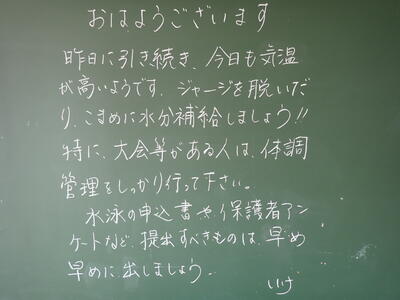 おはようございます
昨日に引き続き、今日も気温
が高いようです。ジャージを脱いだ
り、こまめに水分補給しましょう!!
特に、大会等がある人は、体調
管理をしっかり行って下さい。
水泳の申込書や、保護者アン
ケートなど、提出すべきものは、早め
早めに出しましょう。
いけ